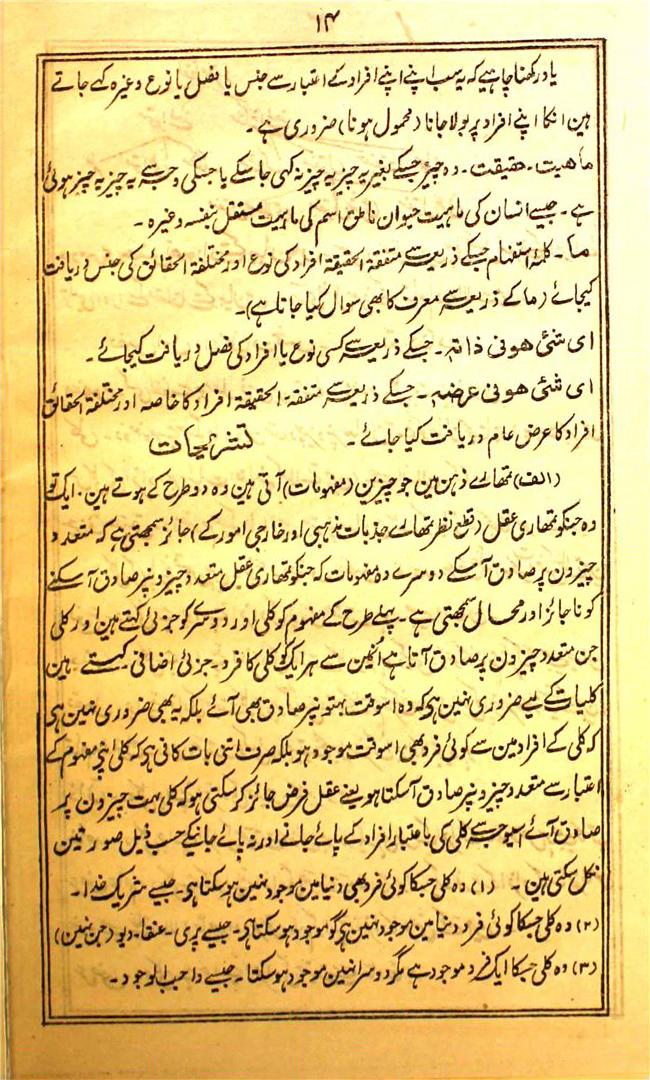 ۱۴
یاد رکھنا چاہیے کہ یہ سب اپنے اپنے افراد کے اعتبار سے جنس یا فصل یا نوع وغیرہ کہے جاتے
ہین انکا اپنے افراد پر بولا جانا (محمول ہونا) ضروری ہے ۔
ماھیت ۔ حقیقت ۔ وہ چیز جسکے بغیر یہ چیز یہ چیز نہ کہی جا سکے یا جسکی وجہ سے یہ چیز یہ چیز ہوئی
ہے ۔ جیسے انسان کی ماہیت حیوان ناطق اسم کی ماہیت مستقل بنفسہ وغیرہ ۔
ما ۔ کلمۂ استفہام جسکے ذریعہ سے متفقۃ الحقیقۃ افراد کی نوع اور مختلفۃ الحقائق کی جنس دریافت
کیجائے (ما کے ذریعہ سے معرف کا بھی سوال کیا جاتا ہے) ۔
ای شئی ھو فی ذاتہ ۔ جسکے ذریعہ سے کسی نوع یا افراد کی فصل دریافت کیجائے ۔
ای شئی ھو فی عرضہ ۔ جسکے ذریعہ سے متفقۃ الحقیقۃ افراد کا خاصہ اور مختلفۃ الحقائق
افراد کا عرض عام دریافت کیا جائے ۔
تشریحات
(الف) تمھارے ذہن مین جو چیزین (مفہومات) آتی ہین وہ دو طرح کے ہوتے ہین ۔ ایک تو
وہ جنکو تمھاری عقل (قطع نظر تمھارے جذبات مذہبی اور خارجی امور کے) جائز سمجھتی ہے کہ متعدد
چیزون پر صادق آ سکے دوسرے وہ مفہومات کہ جنکو تمھاری عقل متعدد چیزونپر صادق آ سکنے
کو ناجائز اور محال سمجھتی ہے ۔ پہلے طرح کے مفہوم کو کلی اور دوسرے کو جزئی کہتے ہین اور کلی
جن متعدد چیزون پر صادق آتا ہے اُنھین سے ہر ایک کو کلی کا فرد ۔ جزئی اضافی کہتے ہین
کلیات کے لیے ضروری نہین ہی کہ وہ اسوقت بہتونپر صادق بھی آئے بلکہ یہ بھی ضروری نہین ہی
کہ کلی کے افراد مین سے کوئی فرد بھی اسوقت موجود ہو بلکہ صرف اتنی بات کافی ہی کہ کلی اپنے مفہوم کے
اعتبار سے متعدد چیزونپر صادق آ سکتا ہو یعنے عقل فرض جائز کر سکتی ہو کہ کلی بہت چیزون پر
صادق آئے اسیوجہ سے کلی کی باعتبار افراد کے پائے جانے اور نہ پائے جانیکے حسب ذیل صورتین
نکل سکتی ہین ۔ (۱) وہ کلی جسکا کوئی فرد بھی دنیا مین موجود نہین ہو سکتا ہی ۔ جیسے شریک خدا ۔
(۲) وہ کلی جسکا کوئی فرد دنیا مین موجود نہین ہی گو موجود ہو سکتا ہی ۔ جیسے پری ۔ عنقا ۔ دیو (جن نہین)
(۳) وہ کلی جسکا ایک فرد موجود ہے مگر دوسرا نہین موجود ہو سکتا ۔ جیسے واجب الوجود ۔